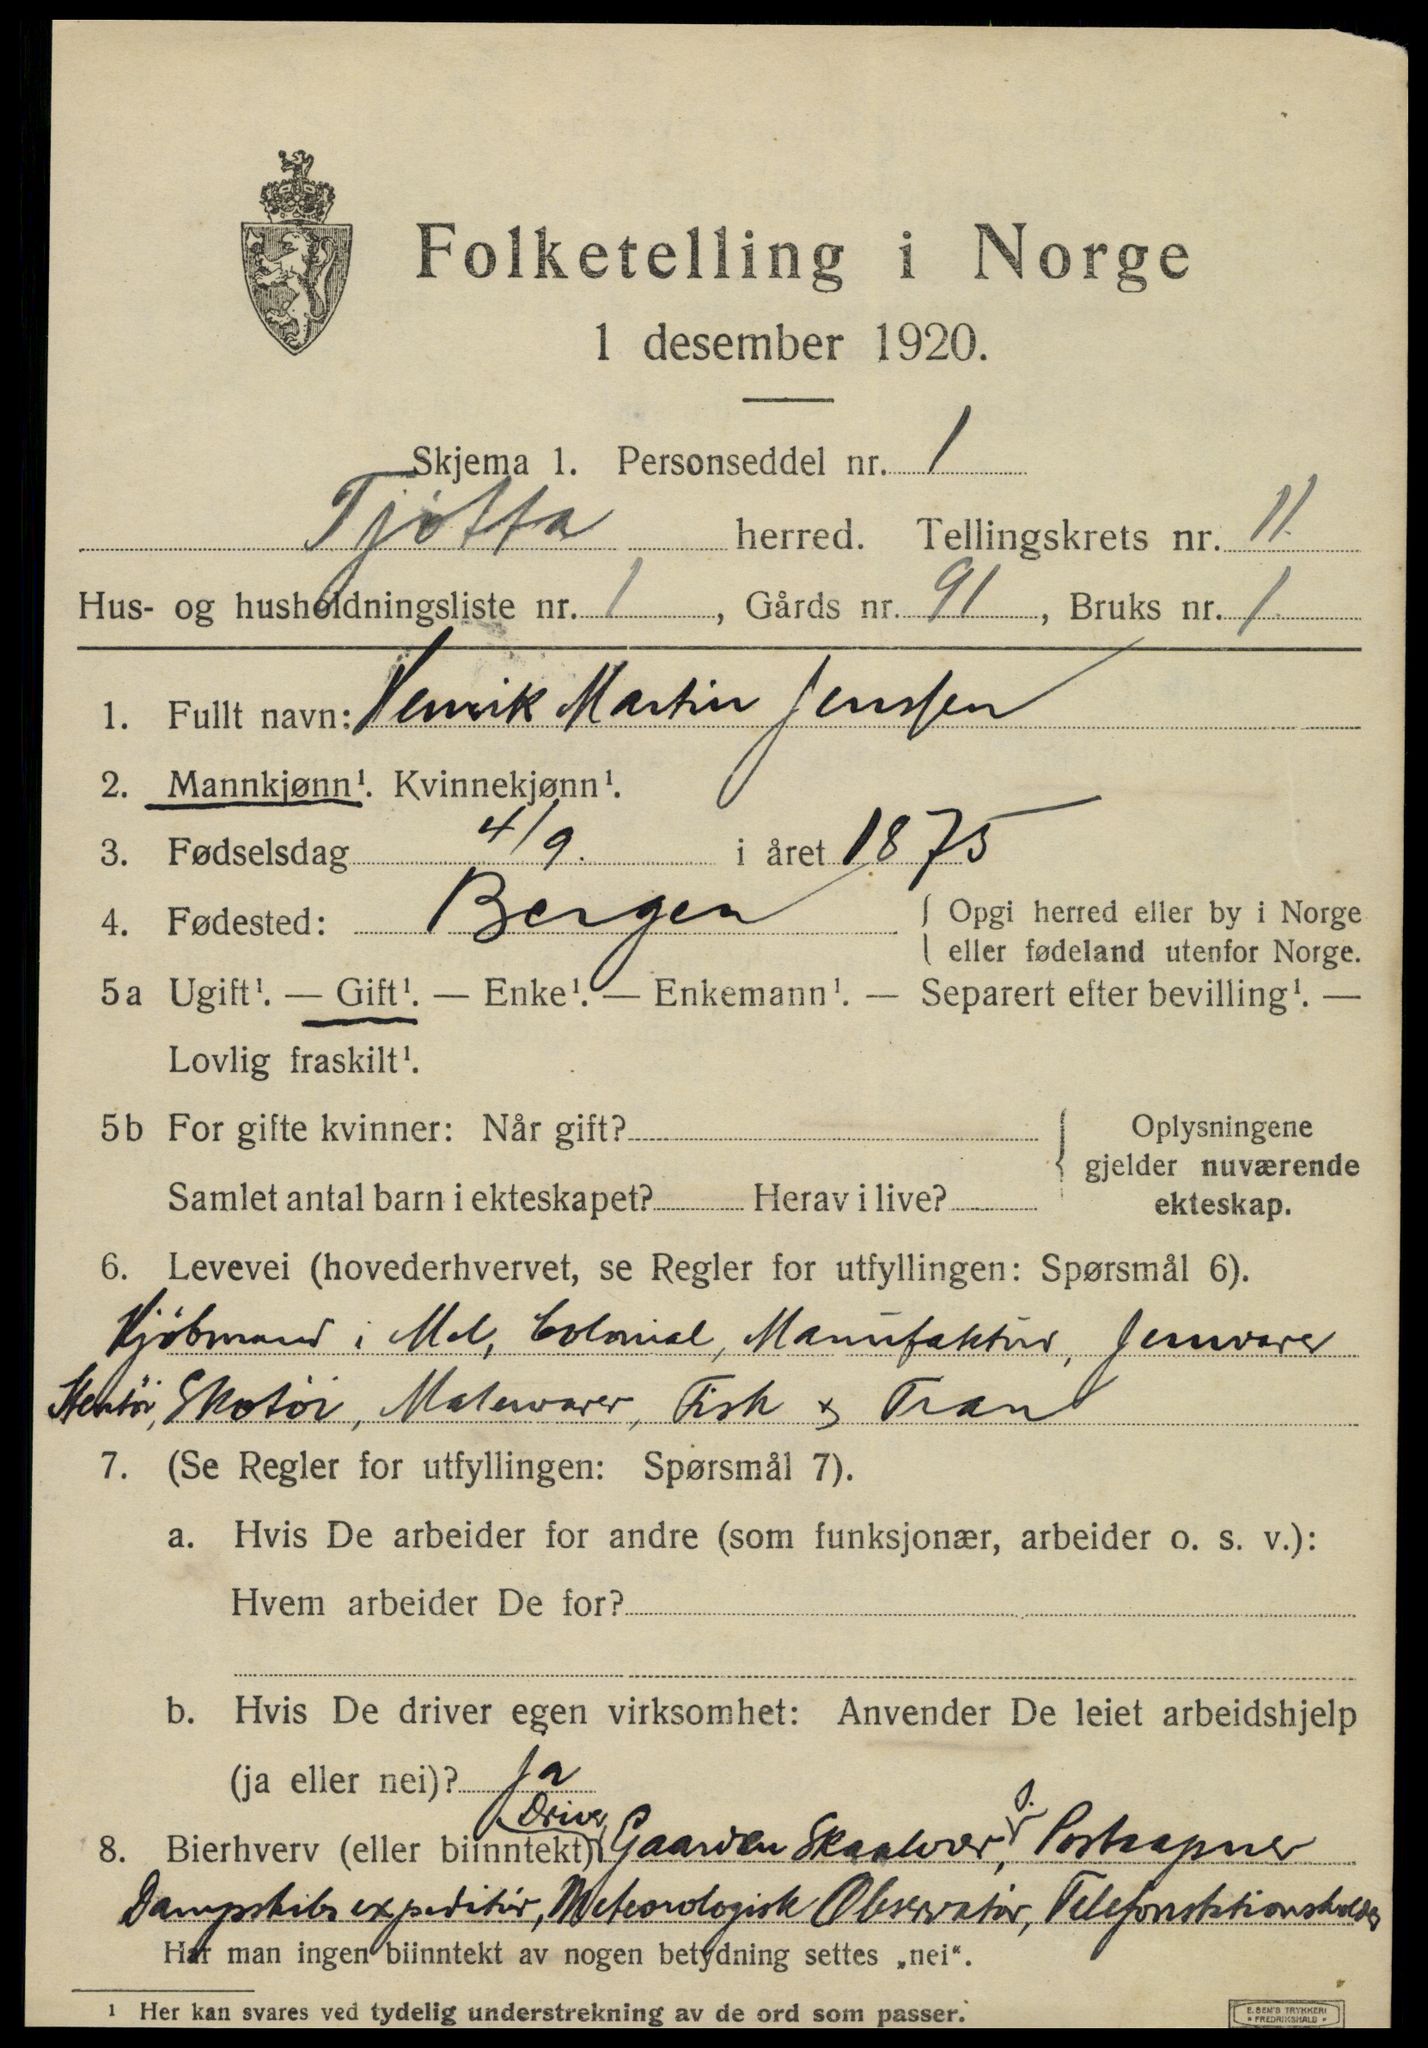 Folketelling i Norge
1 desember 1920.
Skjema 1. Personseddel nr. 1
Tjøtta herred. Tellingskrets nr. 11.
Hus- og husholdningsliste nr. 1, Gårds nr. 91, Bruks nr. 1.
1. Fullt navn: Henrik Martin Jenssen
2. Mannkjønn¹. Kvinnekjønn¹.
3. Fødselsdag 4/9. i året 1875
4. Fødested: Bergen { Opgi herred eller by i Norge
eller fødeland utenfor Norge.
5a Ugift¹. — Gift¹. — Enke¹. — Enkemann¹. — Separert efter bevilling¹. —
Lovlig fraskilt¹.
5b For gifte kvinner: Når gift?
Samlet antal barn i ekteskapet? Herav i live?
{ Oplysningene
gjelder nuværende
ekteskap.
6. Levevei (hovederhvervet, se Regler for utfyllingen: Spørsmål 6).
Kjøbmand i Mel, Colonial, Manufaktur, Jernvarer
Stentøi, Skotøi, Malervarer, Fisk & Tran
7. (Se Regler for utfyllingen: Spørsmål 7).
a. Hvis De arbeider for andre (som funksjonær, arbeider o. s. v.):
Hvem arbeider De for?
b. Hvis De driver egen virksomhet: Anvender De leiet arbeidshjelp
(ja eller nei)? Ja
Driver
8. Bierhverv (eller biinntekt) Gaarden Skaalvær, Postaapner
Dampskibsexpeditør, Meteorologisk Observatør, Telefonstationsholder
Har man ingen biinntekt av nogen betydning settes „nei“.
¹ Her kan svares ved tydelig understrekning av de ord som passer.
E. SEM'S TRYKKERI
• FREDRIKSHALD •